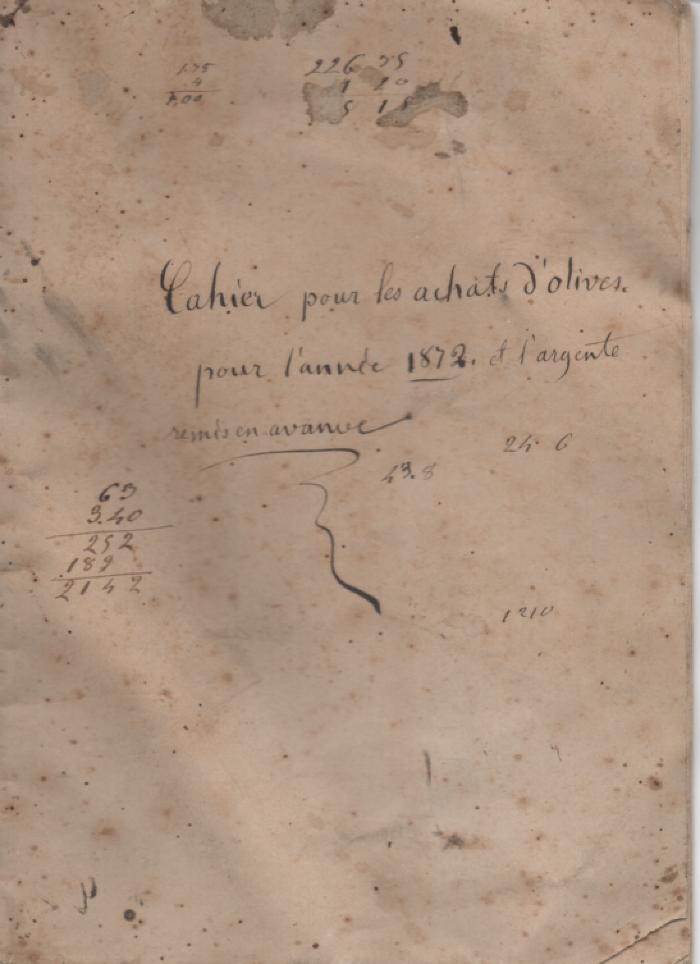 1.75
4
7.00
226 75
1 20
5 15
Cahier pour les achats d'olives.
pour l'année 1872. et l'argente
remis en avance
24. 6
43.8
63
3.40
252
189
2142
1210